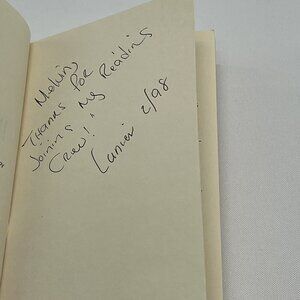 Melvin,
Thanks for
Joining ^ My Reading
Crew!
Lanier 2/98